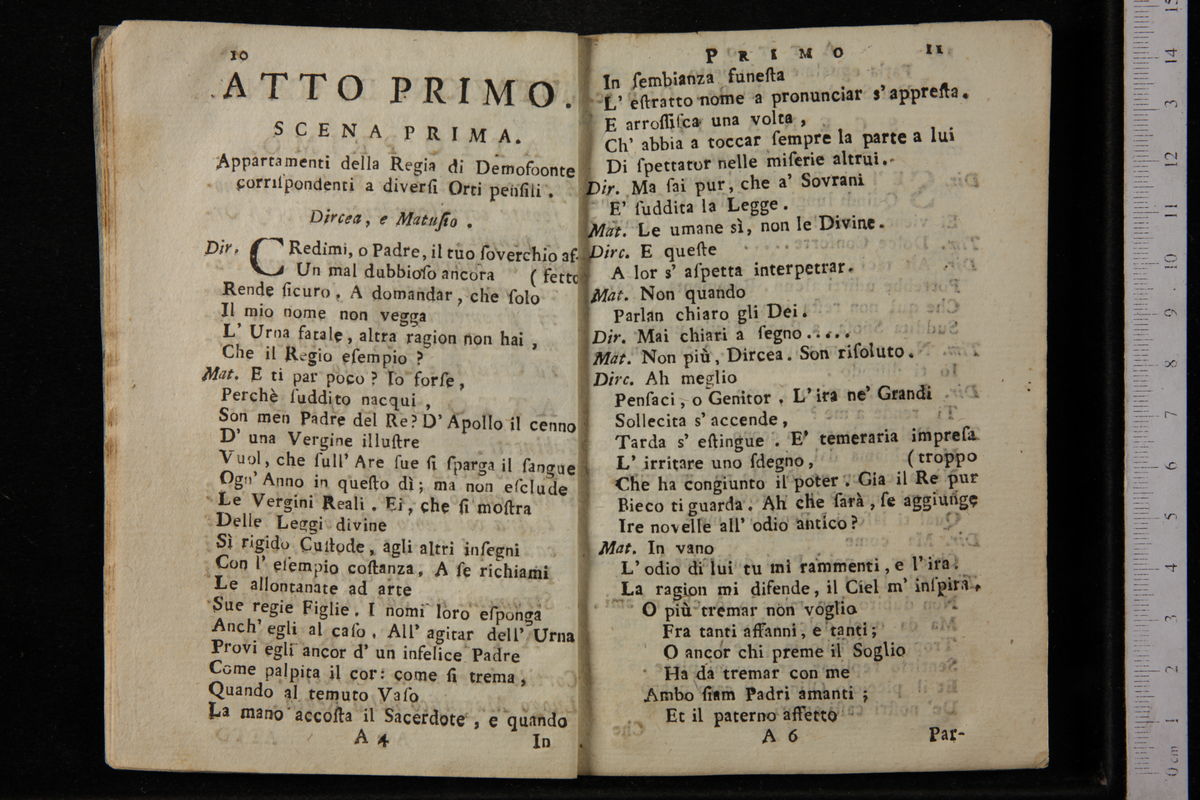 10
ATTO PRIMO.
SCENA PRIMA.
Appartamenti della Regia di Demofoonte
corriſpondenti a diverſi Orti penſili.
Dircea, e Matuſio.
Dir. CRedimi, o Padre, il tuo ſoverchio af-
Un mal dubbioſo ancora (fetto
Rende ſicuro. A domandar, che ſolo
Il mio nome non vegga
L' Urna fatale, altra ragion non hai,
Che il Regio eſempio?
Mat. E ti par poco? Io forſe,
Perchè ſuddito nacqui,
Son men Padre del Re? D' Apollo il cenno
D' una Vergine illuſtre
Vuol, che ſull' Are ſue ſi ſparga il ſangue
Ogn' Anno in queſto dì; ma non eſclude
Le Vergini Reali. Ei, che ſi moſtra
Delle Leggi divine
Sì rigido Cuſtode, agli altri inſegni
Con l' eſempio coſtanza. A ſe richiami
Le allontanate ad arte
Sue regie Figlie. I nomi loro eſponga
Anch' egli al caſo. All' agitar dell' Urna
Provi egli ancor d' un infelice Padre
Come palpita il cor: come ſi trema,
Quando al temuto Vaſo
La mano accoſta il Sacerdote, e quando
A 4
In
PRIMO 11
In ſembianza funeſta
L' eſtratto nome a pronunciar s' appreſta.
E arroſſiſca una volta,
Ch' abbia a toccar ſempre la parte a lui
Di ſpettator nelle miſerie altrui.
Dir. Ma ſai pur, che a' Sovrani
E' ſuddita la Legge.
Mat. Le umane sì, non le Divine.
Dirc. E queſte
A lor s' aſpetta interpetrar.
Mat. Non quando
Parlan chiaro gli Dei.
Dir. Mai chiari a ſegno.....
Mat. Non più, Dircea. Son riſoluto.
Dirc. Ah meglio
Penſaci, o Genitor. L' ira ne' Grandi
Sollecita s' accende,
Tarda s' eſtingue. E' temeraria impreſa
L' irritare uno ſdegno, (troppo
Che ha congiunto il poter. Gia il Re pur
Bieco ti guarda. Ah che ſarà, ſe aggiunge
Ire novelle all' odio antico?
Mat. In vano
L' odio di lui tu mi rammenti, e l' ira.
La ragion mi difende, il Ciel m' inſpira.
O più tremar non voglio
Fra tanti affanni, e tanti;
O ancor chi preme il Soglio
Ha da tremar con me
Ambo ſiam Padri amanti;
Et il paterno affetto
A 6
Par-